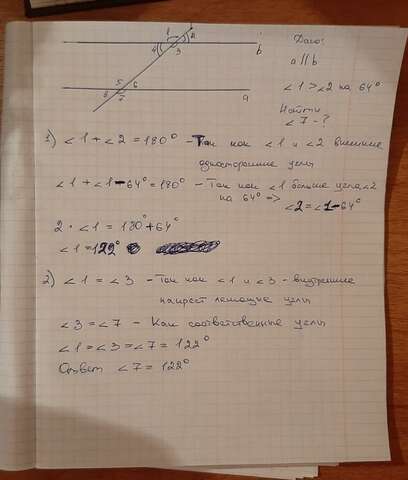 1
2
4
3
b
Дано:
a || b
∠1 > ∠2 на 64°
5
6
8
7
a
Найти
∠7 - ?
1) ∠1 + ∠2 = 180° - Так как ∠1 и ∠2 внешние
односторонние углы
∠1 + ∠1 - 64° = 180° - Так как ∠1 больше угла ∠2
на 64° => ∠2 = ∠1 - 64°
2 · ∠1 = 180° + 64°
∠1 = 122°
2) ∠1 = ∠3 - Так как ∠1 и ∠3 - внутренние
накрест лежащие углы
∠3 = ∠7 - Как соответственные углы
∠1 = ∠3 = ∠7 = 122°
Ответ ∠7 = 122°